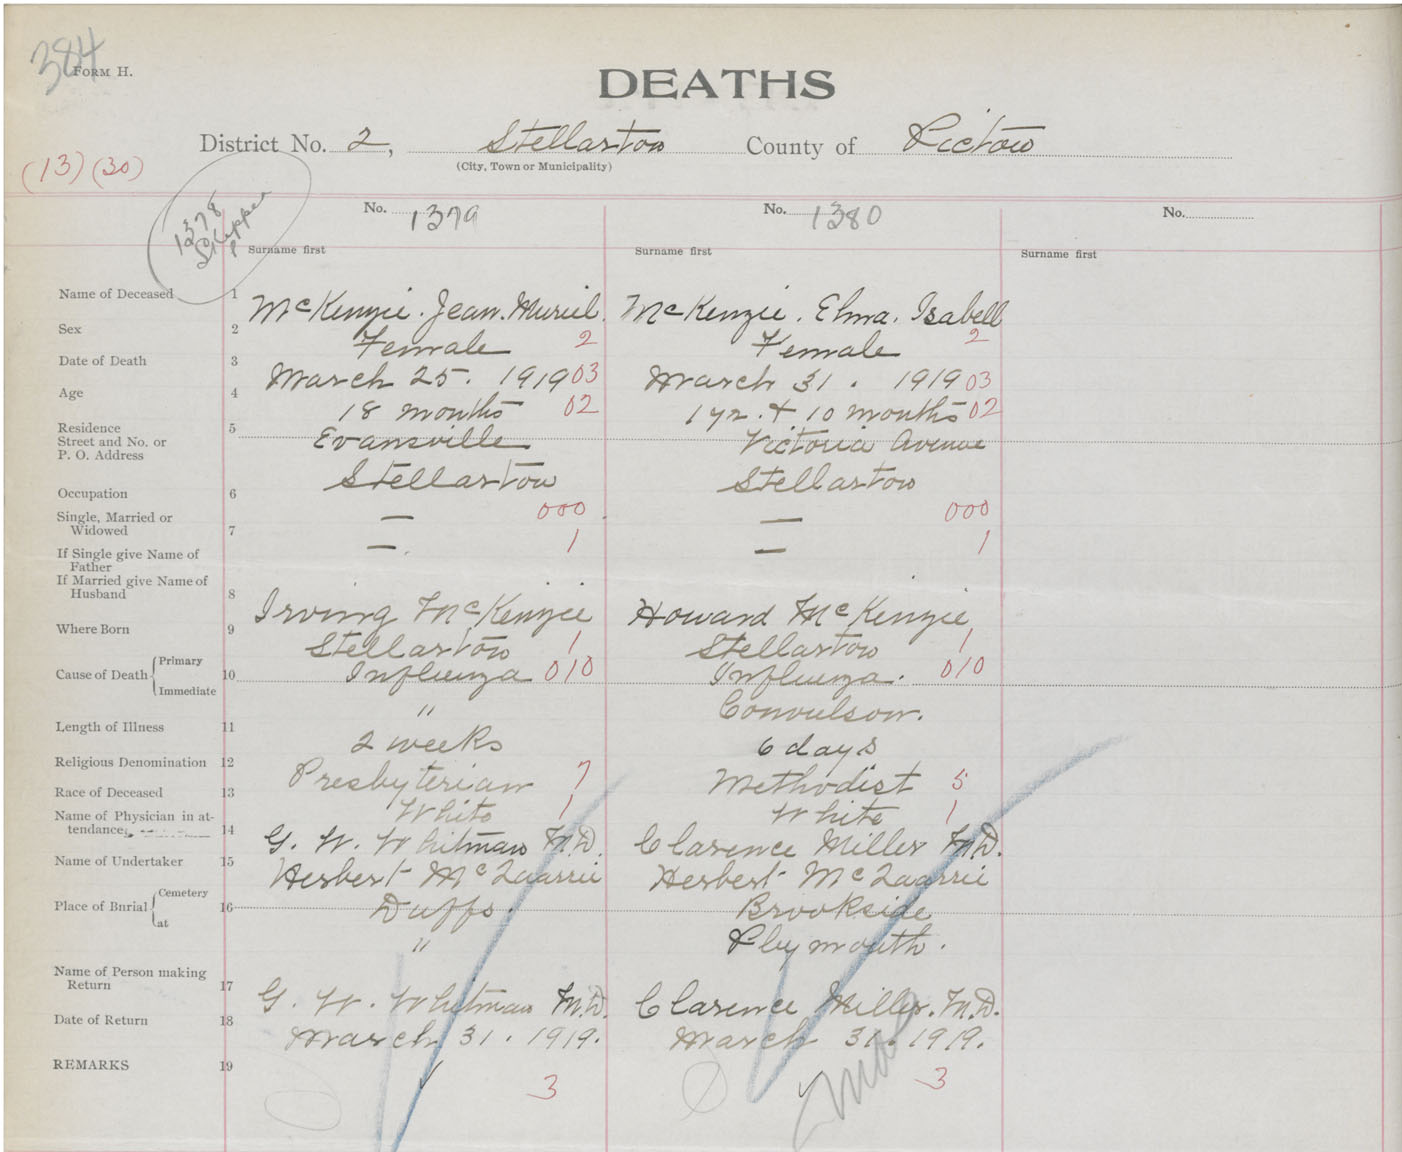 384
FORM H.
DEATHS
District No. 2, Stellarton County of Pictou
(City, Town or Municipality)
(13) (30)
1378 Skipped
No. 1379 No. 1380 No.
Surname first Surname first Surname first
Name of Deceased 1 McKenzie. Jean. Muriel. McKenzie. Elma. Isabell
Sex 2 Female 2 Female 2
Date of Death 3 March 25. 1919 03 March 31. 1919 03
Age 4 18 months 02 1 yr. + 10 months 02
Residence 5 Evansville Victoria Avenue
Street and No. or
P. O. Address Stellarton Stellarton
Occupation 6 — 000 — 000
Single, Married or
Widowed 7 — 1 — 1
If Single give Name of
Father
If Married give Name of
Husband 8 Irving McKenzie Howard McKenzie
Where Born 9 Stellarton 1 Stellarton 1
Cause of Death { Primary 10 Influenza 010 Influenza. 010
Immediate " Convulson.
Length of Illness 11 2 weeks 6 days
Religious Denomination 12 Presbyterian 7 Methodist 5
Race of Deceased 13 White 1 White 1
Name of Physician in at-
tendance 14 G. W. Whitman M.D. Clarence Miller M.D.
Name of Undertaker 15 Herbert McQuarrie Herbert McQuarrie
Place of Burial { Cemetery 16 Duffs. Brookside
at " Plymouth.
Name of Person making
Return 17 G. W. Whitman M.D. Clarence Miller. M.D.
Date of Return 18 March 31. 1919. March 31. 1919.
REMARKS 19 ✓ 3 ✓ 3